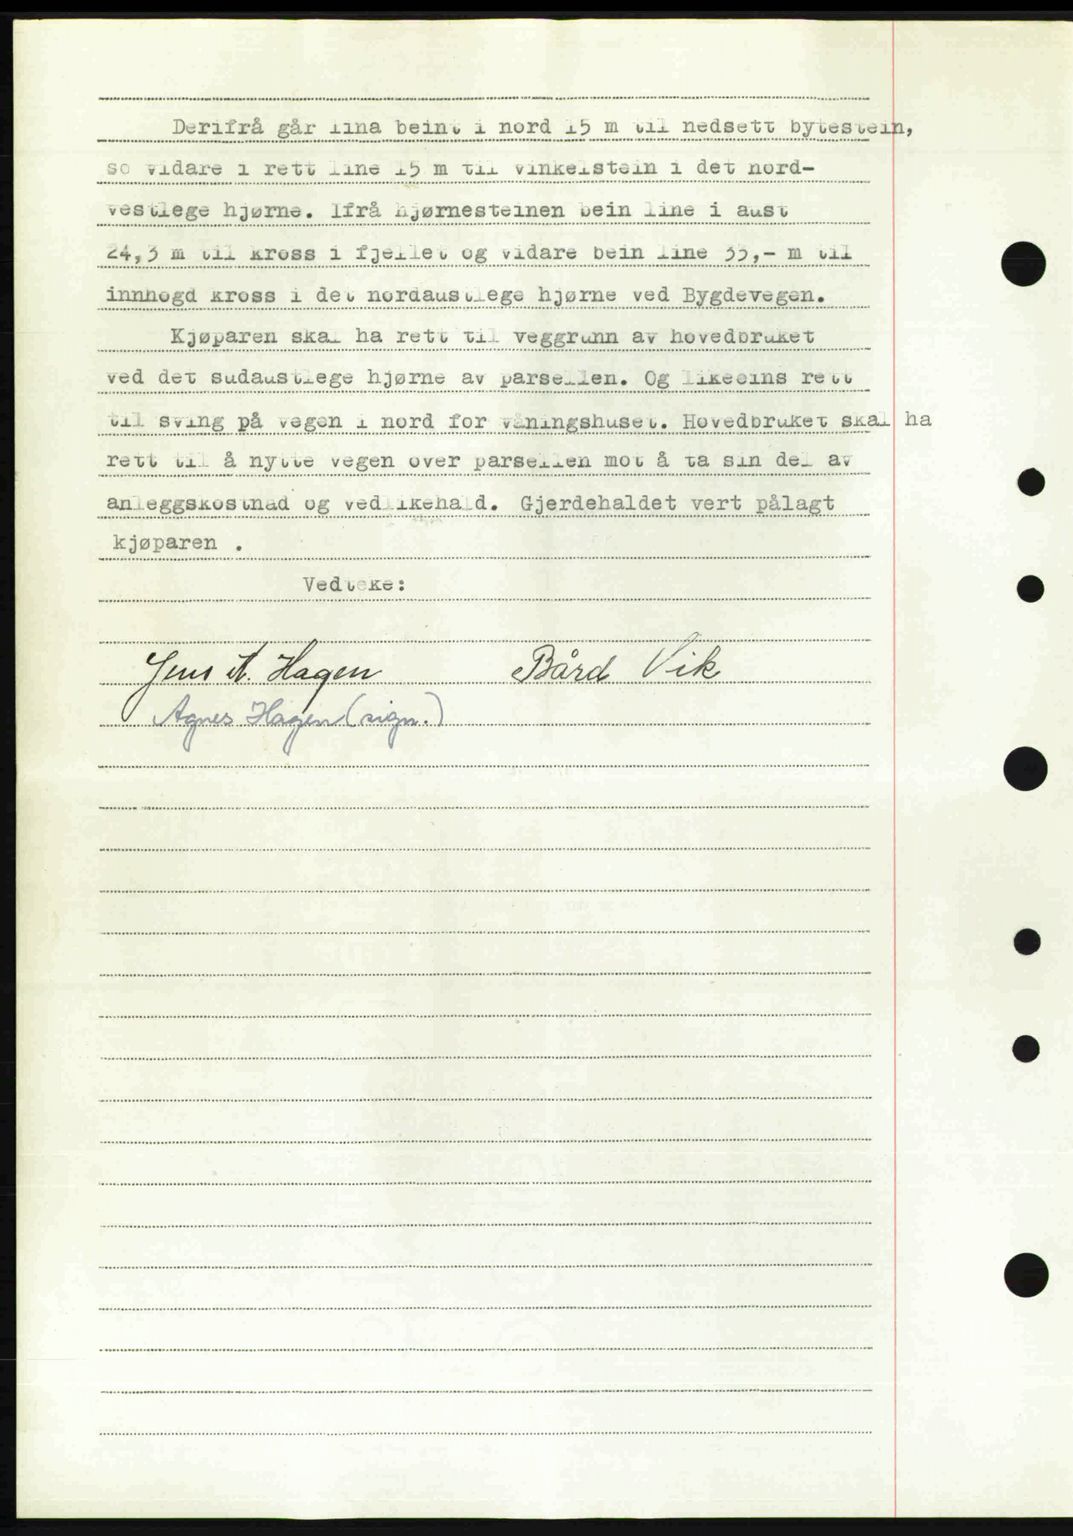 Derifrå går lina beint i nord 15 m til nedsett bytestein,
so vidare i rett line 15 m til vinkelstein i det nord-
vestlege hjørne. Ifrå hjørnesteinen bein line i aust
24,3 m til kross i fjellet og vidare bein line 33,- m til
innhogd kross i det nordaustlege hjørne ved Bygdevegen.
Kjøparen skal ha rett til veggrunn av hovedbruket
ved det sudaustlege hjørne av parsellen. Og likeeins rett
til sving på vegen i nord for våningshuset. Hovedbruket skal ha
rett til å nytte vegen over parsellen mot å ta sin del av
anleggskostnad og vedlikehald. Gjerdehaldet vert pålagt
kjøparen .
Vedteke:
Jens A. Hagen Bård Vik
Agnes Hagen (sign.)